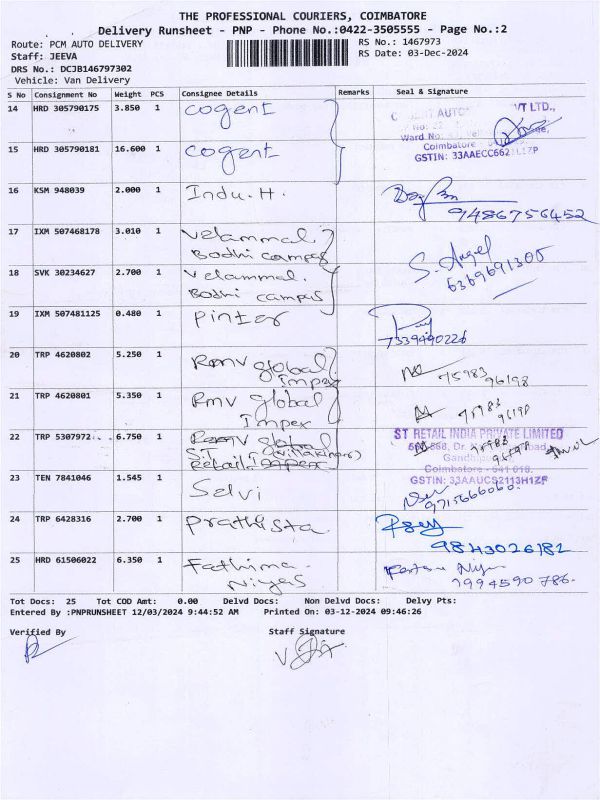 THE PROFESSIONAL COURIERS, COIMBATORE
Delivery Runsheet - PNP - Phone No.:0422-3505555 - Page No.:2
Route: PCM AUTO DELIVERY
Staff: JEEVA
DRS No.: DCJB146797302
Vehicle: Van Delivery
RS No.: 1467973
RS Date: 03-Dec-2024
S No Consignment No Weight PCS Consignee Details Remarks Seal & Signature
14 HRD 305790175 3.850 1 Cogent
AUTO VT LTD.,
Ward No:
Coimbatore
GSTIN: 33AAECC662
15 HRD 305790181 16.600 1 Cogent
16 KSM 948039 2.000 1 Indu.H.
9486756452
17 IXM 507468178 3.010 1 Velammal
Bodhi campus
S. Angel
6369691300
18 SVK 30234627 2.700 1 Velammal.
Bodhi campus
19 IXM 507481125 0.480 1 Pinter
7339490226
20 TRP 4620802 5.250 1 Rmv global
Impex
75983
96198
21 TRP 4620801 5.350 1 Rmv global
Impex
75983
96198
22 TRP 5307972 6.750 1 Rmv global
Retail Impex
ST RETAIL INDIA PRIVATE LIMITED
Coimbatore - 641 018.
GSTIN: 33AAUCS2113H1ZF
23 TEN 7841046 1.545 1 Selvi
9715666060.
24 TRP 6428316 2.700 1 Prathista
9843026182
25 HRD 61506022 6.350 1 Fathima
Niyas
7994590786.
Tot Docs: 25 Tot COD Amt: 0.00 Delvd Docs: Non Delvd Docs: Delvy Pts:
Entered By :PNPRUNSHEET 12/03/2024 9:44:52 AM Printed On: 03-12-2024 09:46:26
Verified By
Staff Signature